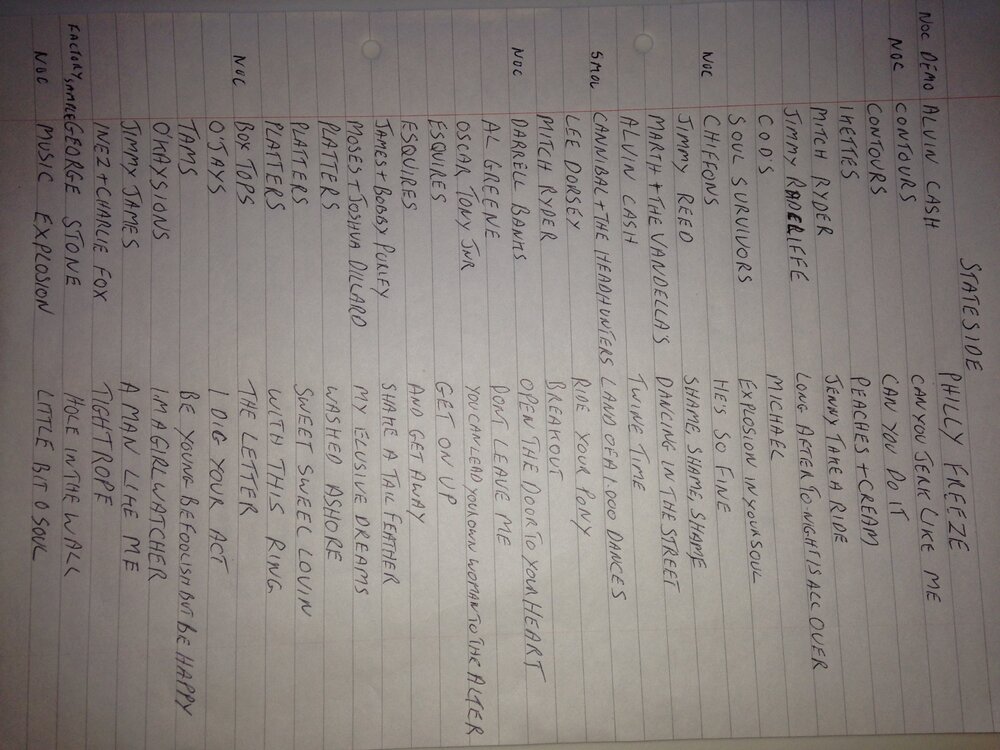 STATESIDE
NOC DEMO ALVIN CASH PHILLY FREEZE
NOC CONTOURS CAN YOU JERK LIKE ME
CONTOURS CAN YOU DO IT
IKETTES PEACHES + CREAM
MITCH RYDER JENNY TAKE A RIDE
JIMMY LONG AFTER TO-NIGHT IS ALL OVER
C.O.D'S MICHAEL
SOUL SURVIVORS EXPLOSION IN YOUR SOUL
NOC CHIFFONS HE'S SO FINE
JIMMY REED SHAME, SHAME, SHAME
MARTH + THE VANDELLA'S DANCING IN THE STREET
ALVIN CASH TWINE TIME
SMOL CANNIBAL + THE HEADHUNTERS LAND OF A 1.000 DANCES
LEE DORSEY RIDE YOUR PONY
MITCH RYDER BREAKOUT
NOC DARRELL BANKS OPEN THE DOOR TO YOUR HEART
AL GREENE DONT LEAVE ME
OSCAR TONY JNR YOU CAN LEAD YOUR OWN WOMAN TO THE ALTER
ESQUIRES GET ON UP
ESQUIRES AND GET AWAY
JAMES + BOBBY PURLEY SHAKE A TAIL FEATHER
MOSES + JOSHUA DILLARD MY ELUSIVE DREAMS
PLATTERS WASHED ASHORE
PLATTERS SWEET SWEEL LOVIN
PLATTERS WITH THIS RING
NOC BOX TOPS THE LETTER
O'JAYS I DIG YOUR ACT
TAMS BE YOUNG BE FOOLISH BUT BE HAPPY
O'KAYSIONS I'M A GIRL WATCHER
JIMMY JAMES A MAN LIKE ME
INEZ + CHARLIE FOX TIGHTROPE
FACTORY SAMPLE GEORGE STONE HOLE IN THE WALL
NOC MUSIC EXPLOSION LITTLE BIT O SOUL